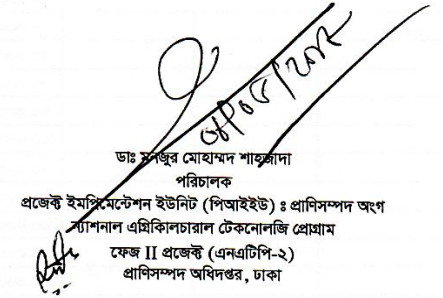 ডাঃ মনজুর মোহাম্মদ শাহজাদা
পরিচালক
প্রজেক্ট ইমপ্লিমেন্টেশন ইউনিট (পিআইইউ) : প্রাণিসম্পদ অংগ
ন্যাশনাল এগ্রিকালচারাল টেকনোলজি প্রোগ্রাম
ফেজ II প্রজেক্ট (এনএটিপি-২)
প্রাণিসম্পদ অধিদপ্তর, ঢাকা